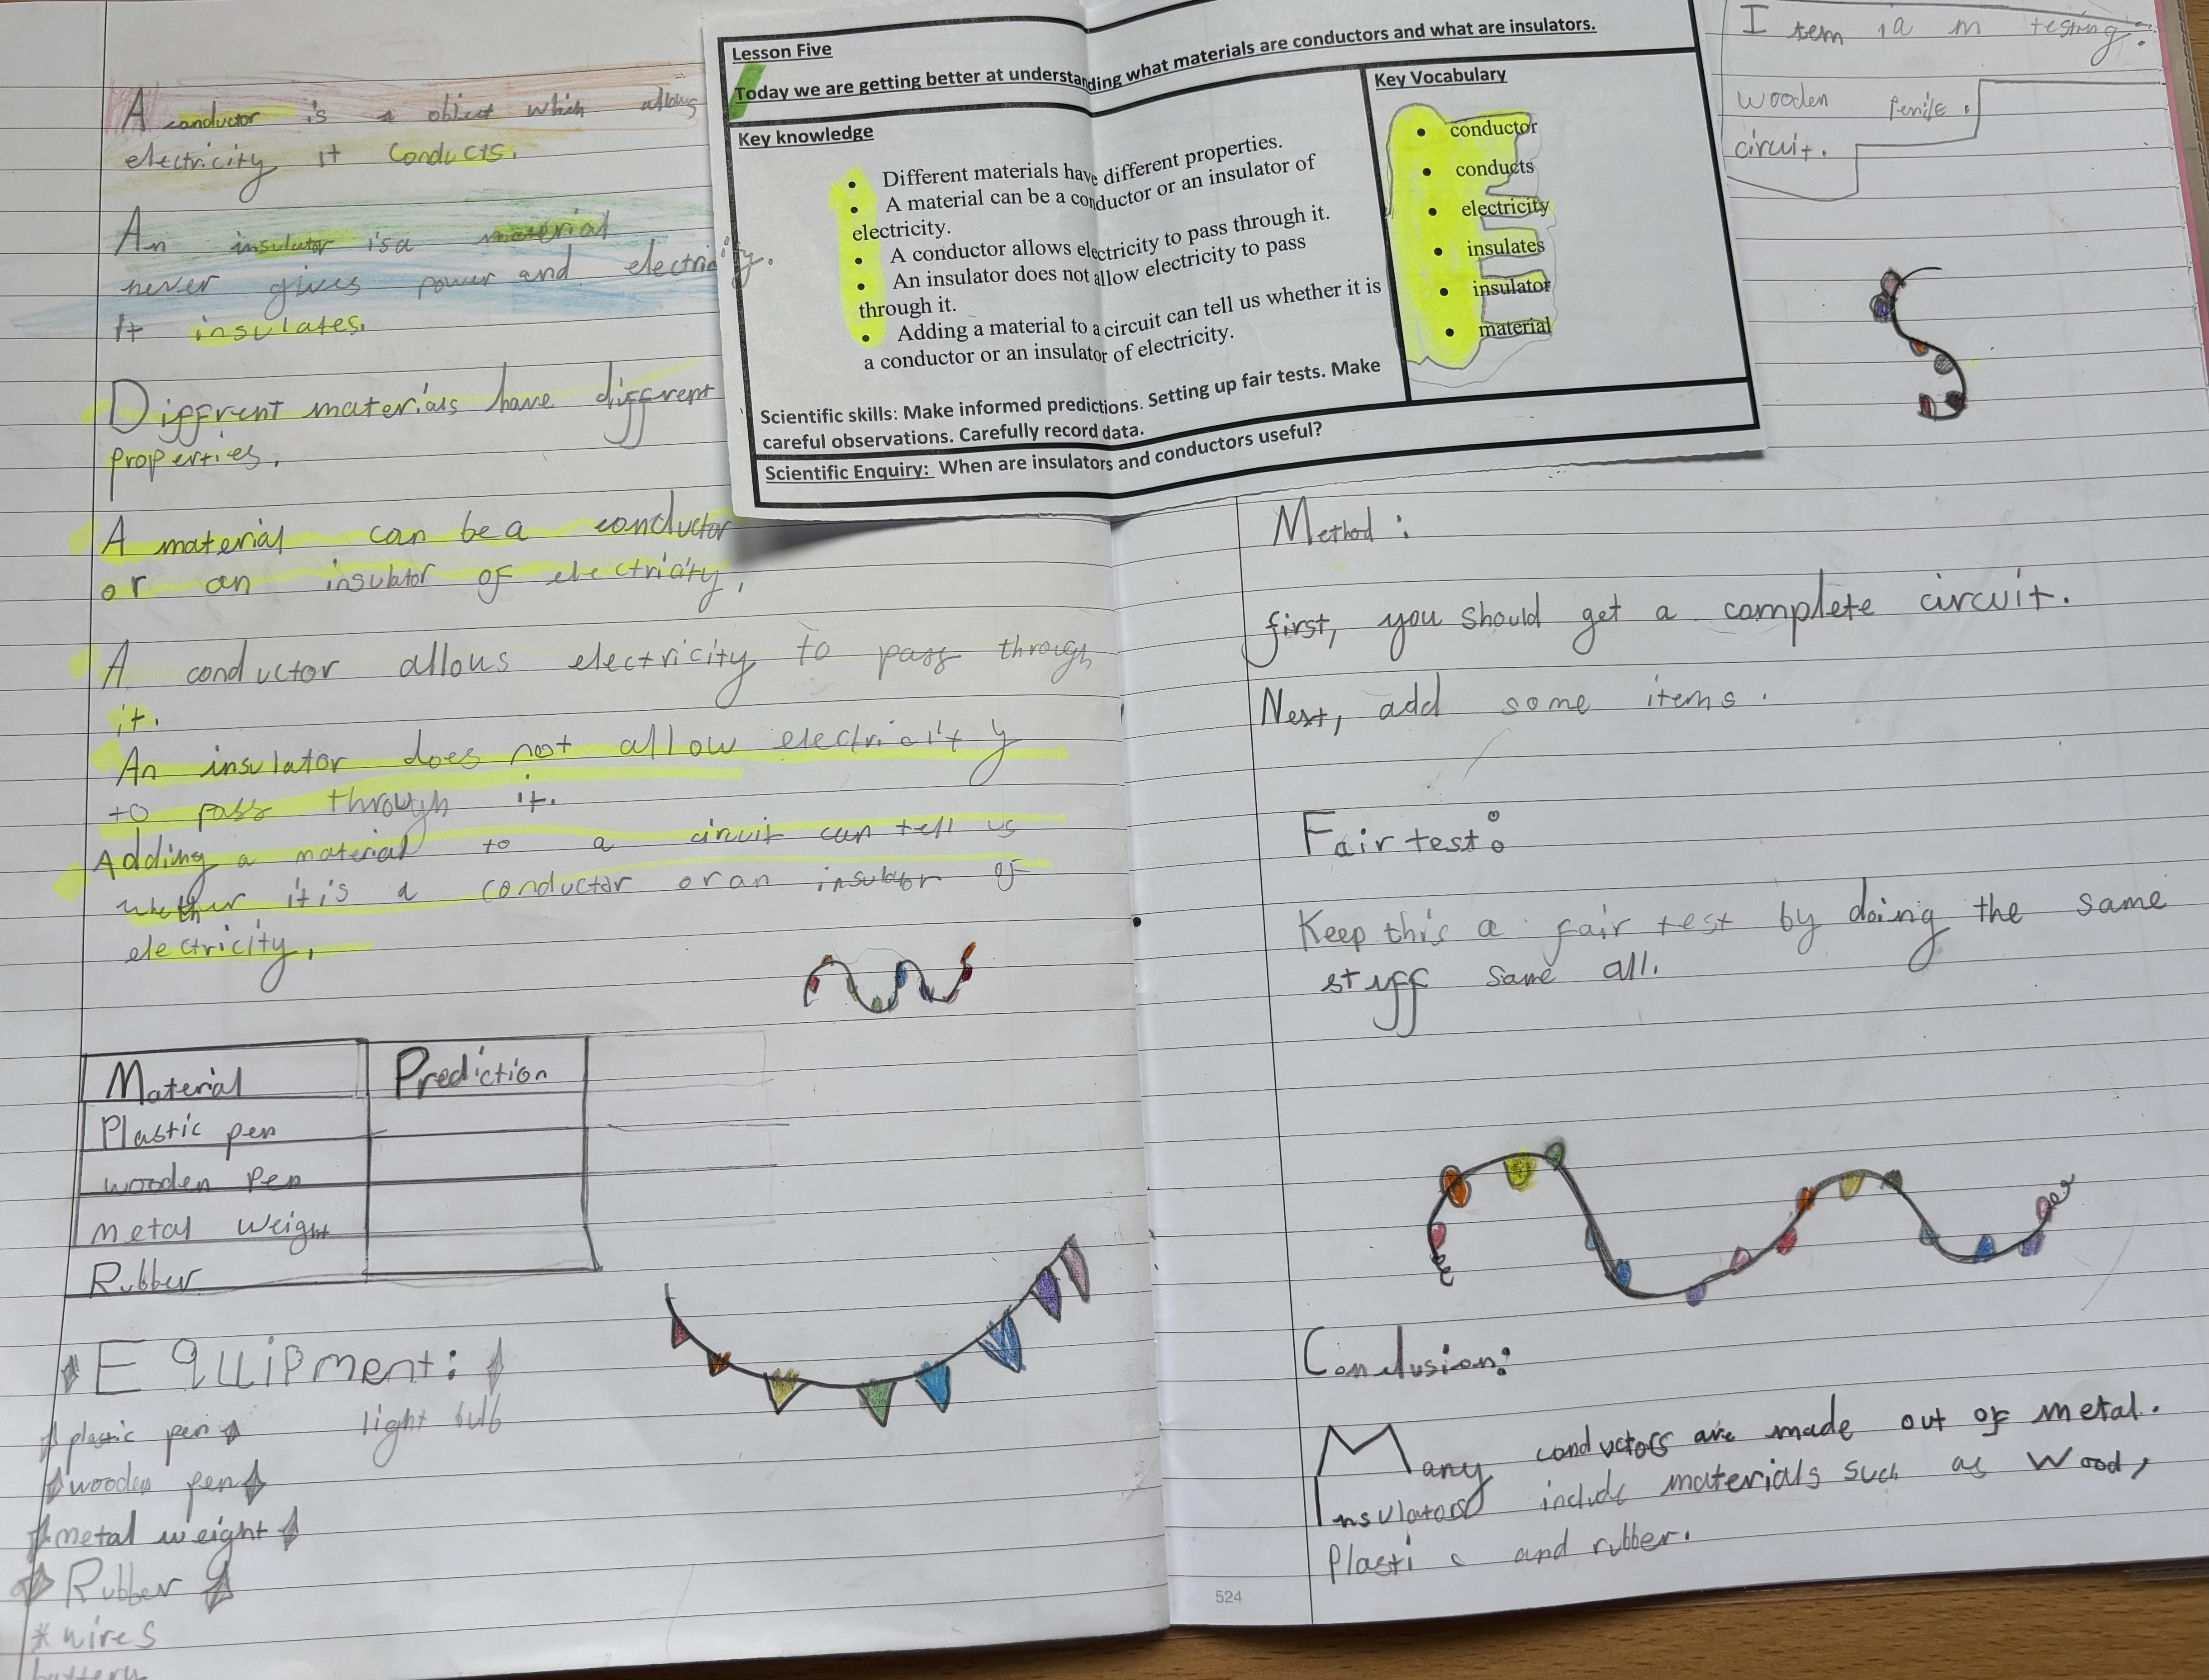 A conductor is a object which allows
electricity it conducts.
An insulator is a material
never gives power and electricity.
It insulates.
Diffrent materials have diffrent
properties.
A material can be a conductor
or an insulator of electricity.
A conductor allows electricity to pass through
it.
An insulator does not allow electricity
to pass through it.
Adding a material to a circuit can tell us
whether it is a conductor or an insulator of
electricity.
Material Prediction
Plastic pen
wooden pen
metal weight
Rubber
Equipment:
plastic pen light bulb
wooden pen
metal weight
Rubber
*wires
battery
Lesson Five
Today we are getting better at understanding what materials are conductors and what are insulators.
Key knowledge
• Different materials have different properties.
• A material can be a conductor or an insulator of
electricity.
• A conductor allows electricity to pass through it.
• An insulator does not allow electricity to pass
through it.
• Adding a material to a circuit can tell us whether it is
a conductor or an insulator of electricity.
Key Vocabulary
• conductor
• conducts
• electricity
• insulates
• insulator
• material
Scientific skills: Make informed predictions. Setting up fair tests. Make
careful observations. Carefully record data.
Scientific Enquiry: When are insulators and conductors useful?
Item ia m testing:
wooden
circuit.
Method:
first, you should get a complete circuit.
Next, add some items.
Fair test:
Keep this a fair test by doing the same
stuff same all.
Conclusion:
Many conductors are made out of metal.
Insulators include materials such as wood,
Plastic and rubber.
524